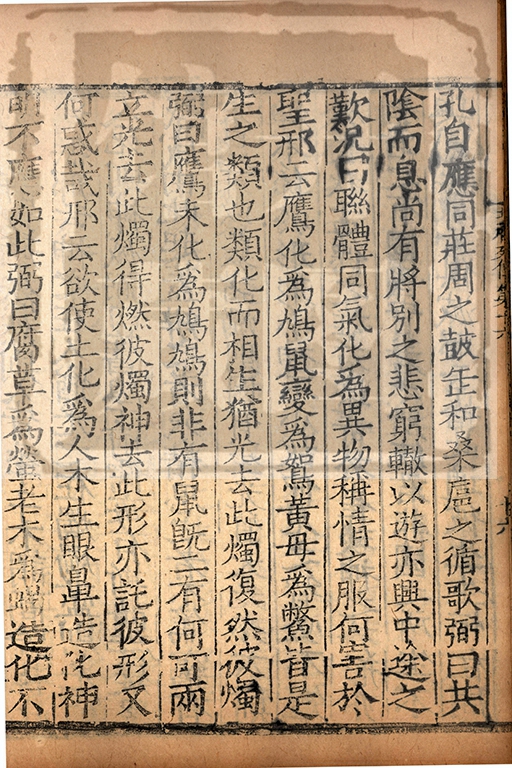 孔自應同莊周之鼓缶和桑扈之循歌弼曰共
陰而息尚有將別之悲窮轍以遊亦興中途之
歎況曰聯體同氣化爲異物稱情之服何害於
聖邢云鷹化爲鳩鼠變爲鴽黃母爲鱉皆是
生之類也類化而相生猶光去此燭復然彼燭
弼曰鷹未化爲鳩鳩則非有鼠既二有何可兩
立光去此燭得燃彼燭神去此形亦託彼形又
何惑哉邢云欲使土化爲人木生眼鼻造化神
明不應如此弼曰腐草爲螢老木爲蝎造化不